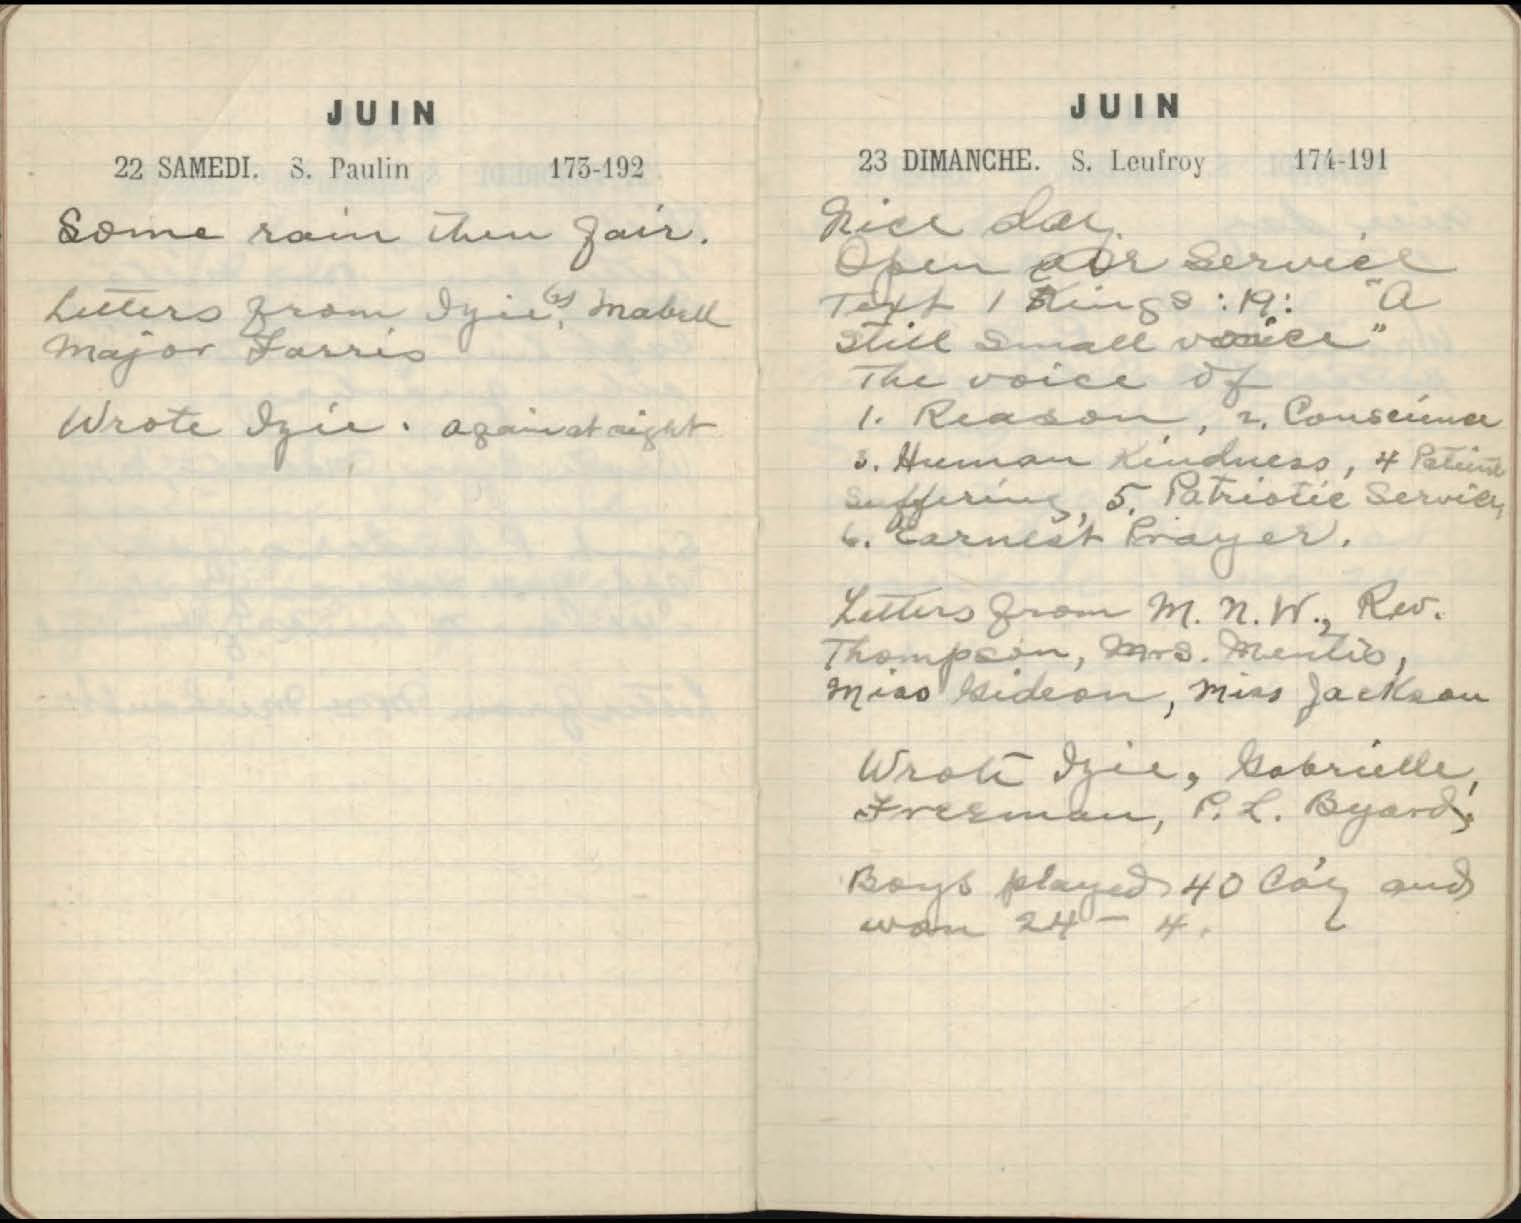 JUIN
22 SAMEDI. S. Paulin 173-192
Some rain then fair.
Letters from Izie, Mabell
Major Farris
Wrote Izie. again at night
JUIN
23 DIMANCHE. S. Leufroy 174-191
Nice day.
Open air service
Text 1 Kings :19: "A
still small voice"
The voice of
1. Reason, 2. Conscience
3. Human Kindness, 4 Patient
Suffering, 5. Patriotic Service,
6. Earnest Prayer.
Letters from M. N. W., Rev.
Thompson, Mrs. Mentis,
Miss Gideon, Miss Jackson
Wrote Izie, Gabrielle,
Freeman, P. L. Byard,
Boys played 40 Co'y and
won 24 - 4.